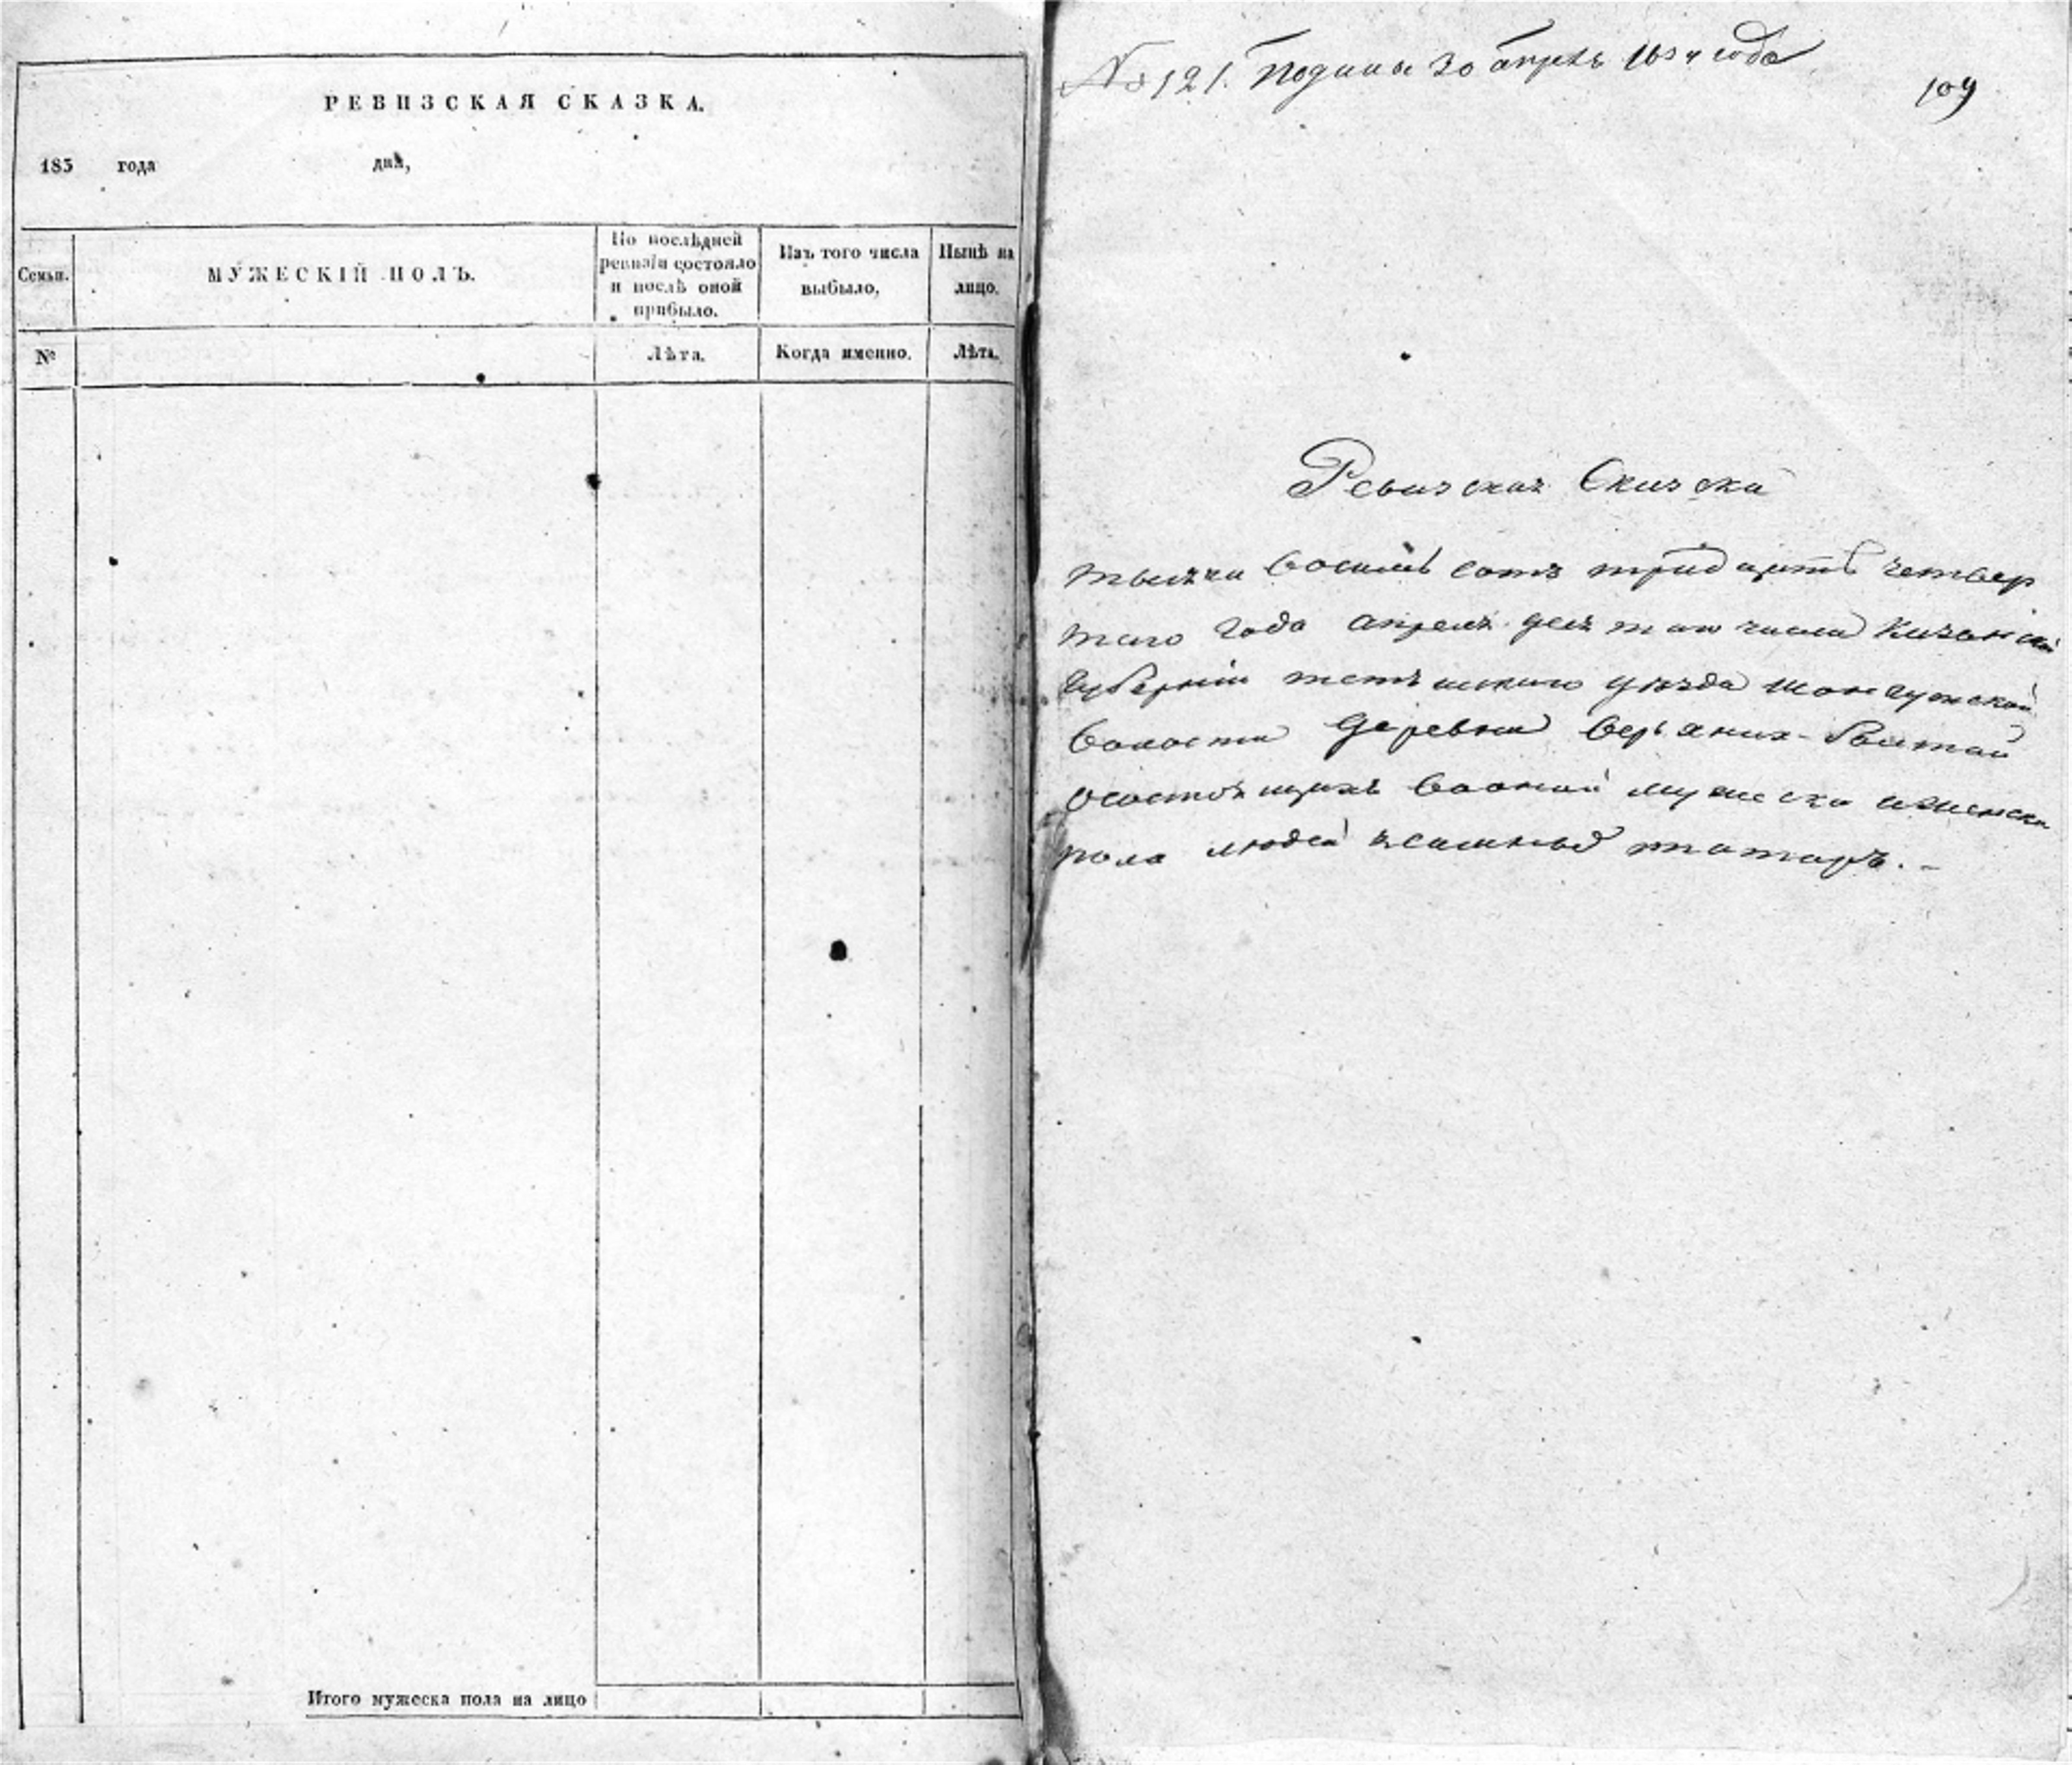 РЕВИЗСКАЯ СКАЗКА.
183 года дня,
Семьи.
МУЖЕСКІЙ ПОЛЪ.
По послѣдней
ревизіи состояло
и послѣ оной
прибыло.
Изъ того числа
выбыло.
Нынѣ на
лицо.
№
Лѣта.
Когда именно.
Лѣта.
Итого мужеска пола на лицо
№ 121. Подана 30 апрель 1834 года
109
Ревизская Сказка
тысяча восемь сотъ тридцать четвер
таго года апреля числа Казанской
губерніи тетюшскаго уѣзда шонгутской
волости деревни верхнихъ
состоящихъ воной мужеска иженска
пола людей татаръ.-